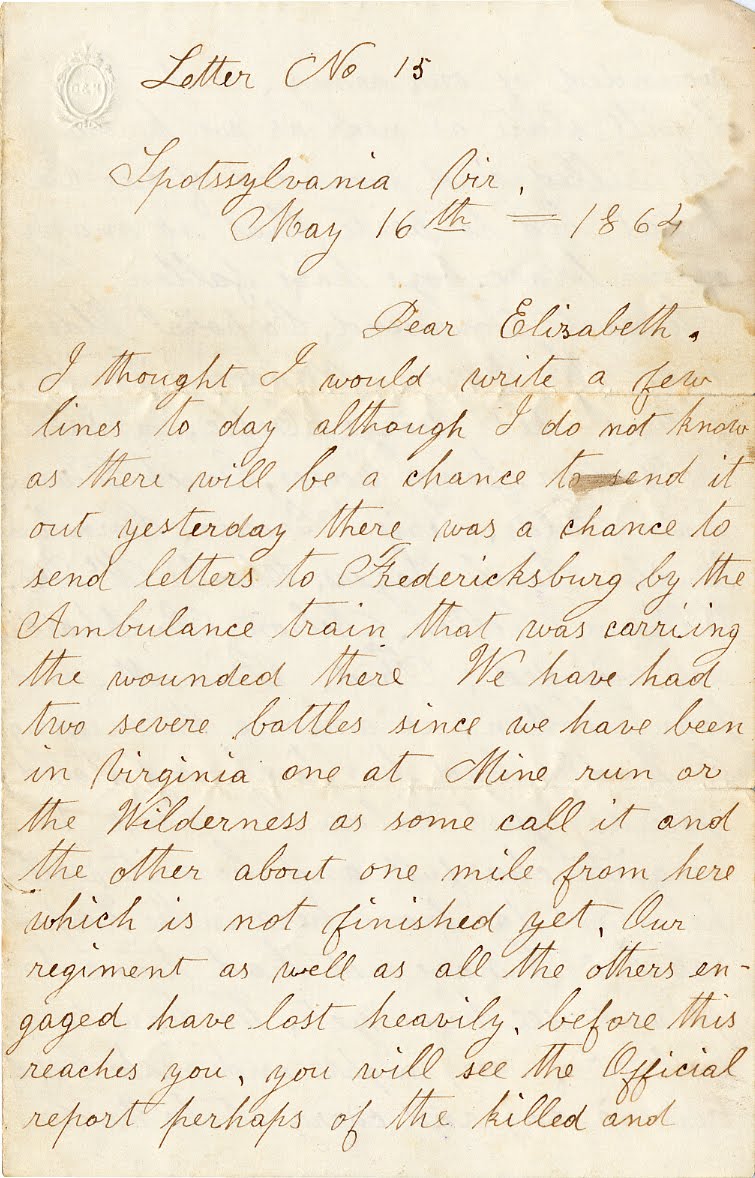 Letter No 15
Spotssylvania Vir.
May 16th = 1864
Dear Elizabeth.
I thought I would write a few
lines to day although I do not know
as there will be a chance to send it
out yesterday there was a chance to
send letters to Fredericksburg by the
Ambulance train that was carriing
the wounded there We have had
two severe battles since we have been
in Virginia one at Mine run or
the Wilderness as some call it and
the other about one mile from here
which is not finished yet, Our
regiment as well as all the others en-
gaged have lost heavily, before this
reaches you, you will see the Official
report perhaps of the killed and